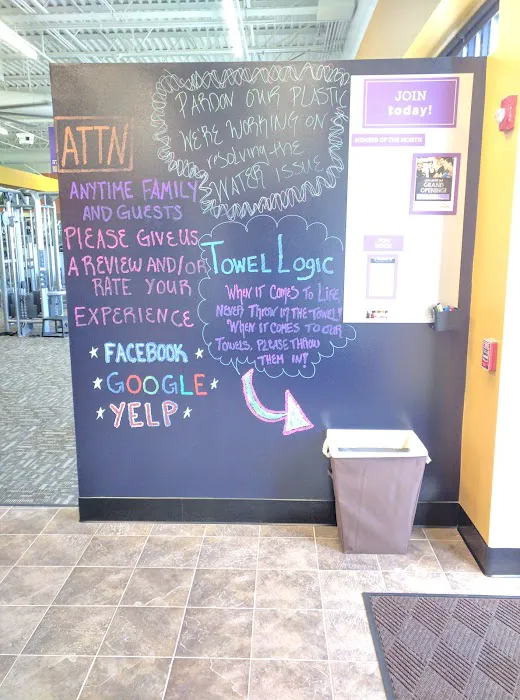 ATTN
ANYTIME FAMILY
AND GUESTS
PLEASE GIVE US
A REVIEW AND/OR
RATE YOUR
EXPERIENCE
FACEBOOK
GOOGLE
YELP
PARDON OUR PLASTIC
WE'RE WORKING ON
resolving the
WATER ISSUE
TOWEL LOGIC
WHEN IT COMES TO LIFE,
NEVER THROW IN THE TOWEL!
WHEN IT COMES TO OUR
TOWELS, PLEASE THROW
THEM IN!
JOIN
today!
MEMBER OF THE MONTH
GRAND
OPENING!